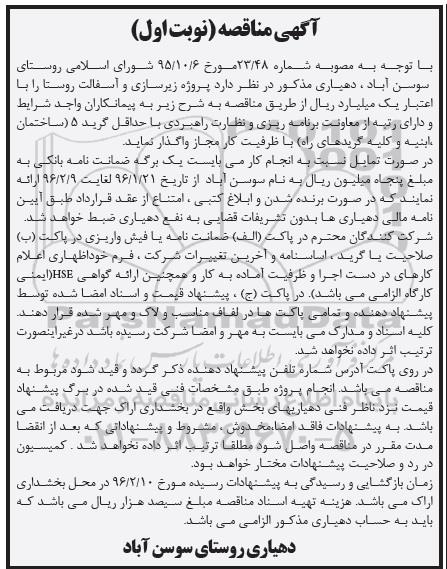 آگهی مناقصه (نوبت اول)
با توجه به مصوبه شماره ۲۳/۴۸مورخ ۹۵/۱۰/۶ شورای اسلامی روستای
سوسن آباد ، دهیاری مذکور در نظر دارد پروژه زیرسازی و آسفالت روستا را با
اعتبار یک میلیارد ریال از طریق مناقصه به شرح زیر به پیمانکاران واجد شرایط
و دارای رتبه از معاونت برنامه ریزی و نظارت راهبردی با حداقل گرید ۵ (ساختمان
،ابنیه و کلیه گریدهای راه) با ظرفیت کار مجاز واگذار نماید.
در صورت تمایل نسبت به انجام کار می بایست یک برگه ضمانت نامه بانکی به
مبلغ پنجاه میلیون ریال به نام سوسن آباد از تاریخ ۹۶/۱/۲۱ لغایت ۹۶/۲/۹ ارائه
نمایند که در صورت برنده شدن و ابلاغ کتبی ، امتناع از عقد قرارداد طبق آیین
نامه مالی دهیاری ها بدون تشریفات قضایی به نفع دهیاری ضبط خواهد شد.
شرکت کنندگان محترم در پاکت (الف) ضمانت نامه یا فیش واریزی در پاکت (ب)
صلاحیت یا گرید ، اساسنامه و آخرین تغییرات شرکت ، فرم خوداظهاری اعلام
کارهای در دست اجرا و ظرفیت آماده به کار و همچنین ارائه گواهی HSE(ایمنی
کارگاه الزامی می باشد). در پاکت (ج) ، پیشنهاد قیمت و اسناد امضا شده توسط
پیشنهاد دهنده و تمامی پاکت ها در لفاف مناسب و لاک و مهر شده قرار دهند.
کلیه اسناد و مدارک می بایست به مهر و امضا شرکت رسیده باشد درغیراینصورت
ترتیب اثر داده نخواهد شد.
در روی پاکت آدرس شماره تلفن پیشنهاد دهنده ذکر گردد و قید شود مربوط به
مناقصه می باشد. انجام پروژه طبق مشخصات فنی قید شده در برگ پیشنهاد
قیمت نزد ناظر فنی دهیاریهای بخش واقع در بخشداری اراک جهت دریافت می
باشد. به پیشنهادات فاقد امضا،مخدوش ، مشروط و پیشنهاداتی که بعد از انقضا
مدت مقرر در مناقصه واصل شود مطلقا ترتیب اثر داده نخواهد شد . کمیسیون
در رد و صلاحیت پیشنهادات مختار خواهد بود.
زمان بازگشایی و رسیدگی به پیشنهادات رسیده مورخ ۹۶/۲/۱۰ در محل بخشداری
اراک می باشد. هزینه تهیه اسناد مناقصه مبلغ سیصد هزار ریال می باشد که
باید به حساب دهیاری مذکور الزامی می باشد.
دهیاری روستای سوسن آباد